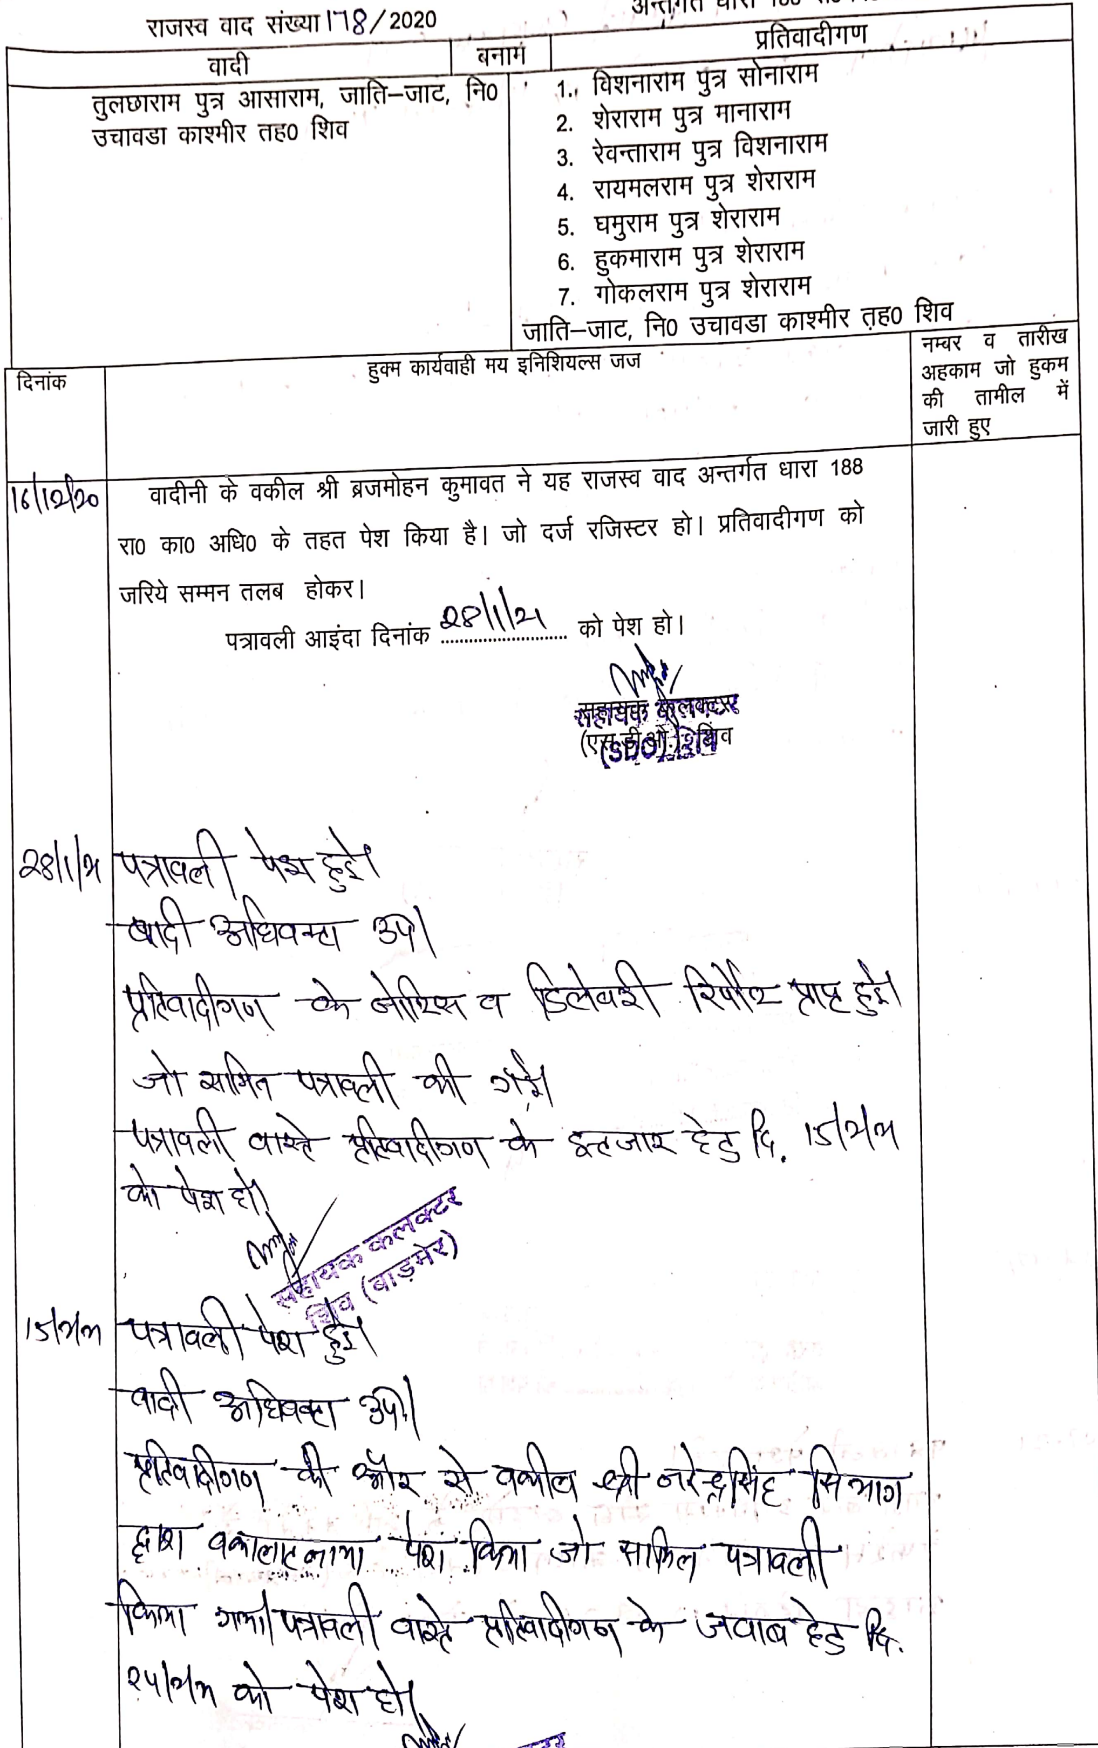 राजस्व वाद संख्या 178/2020
अन्तर्गत धारा 188
वादी
बनाम
प्रतिवादीगण
तुलछाराम पुत्र आसाराम, जाति–जाट, नि0
उचावडा काश्मीर तह0 शिव
1. विशनाराम पुत्र सोनाराम
2. शेराराम पुत्र मानाराम
3. रेवन्ताराम पुत्र विशनाराम
4. रायमलराम पुत्र शेराराम
5. घमुराम पुत्र शेराराम
6. हुकमाराम पुत्र शेराराम
7. गोकलराम पुत्र शेराराम
जाति–जाट, नि0 उचावडा काश्मीर तह0 शिव
दिनांक
हुक्म कार्यवाही मय इनिशियल्स जज
नम्बर व तारीख
अहकाम जो हुकम
की तामील में
जारी हुए
16/12/20
वादीनी के वकील श्री ब्रजमोहन कुमावत ने यह राजस्व वाद अन्तर्गत धारा 188
रा0 का0 अधि0 के तहत पेश किया है। जो दर्ज रजिस्टर हो। प्रतिवादीगण को
जरिये सम्मन तलब होकर।
पत्रावली आइंदा दिनांक 28/1/21 को पेश हो।
सहायक कलक्टर
(एस.डी.ओ.) शिव
सहायक कलक्टर
(SDO) शिव
28/1/21 पत्रावली पेश हुई।
वादी अधिवक्ता उप।
प्रतिवादीगण के नोटिस व डिलेवरी रिपोर्ट प्राप्त हुई।
जो सामिल पत्रावली की गई।
पत्रावली वास्ते प्रतिवादीगण के इन्तजार हेतु दि. 15/2/21
को पेश हो।
सहायक कलक्टर
शिव (बाड़मेर)
15/2/21 पत्रावली पेश हुई।
वादी अधिवक्ता उप।
प्रतिवादीगण की और से वकील श्री नरेन्द्रसिंह सियाग
द्वारा वकालातनामा पेश किया जो सामिल पत्रावली
किया गया। पत्रावली वास्ते प्रतिवादीगण के जवाब हेतु दि.
को पेश हो।